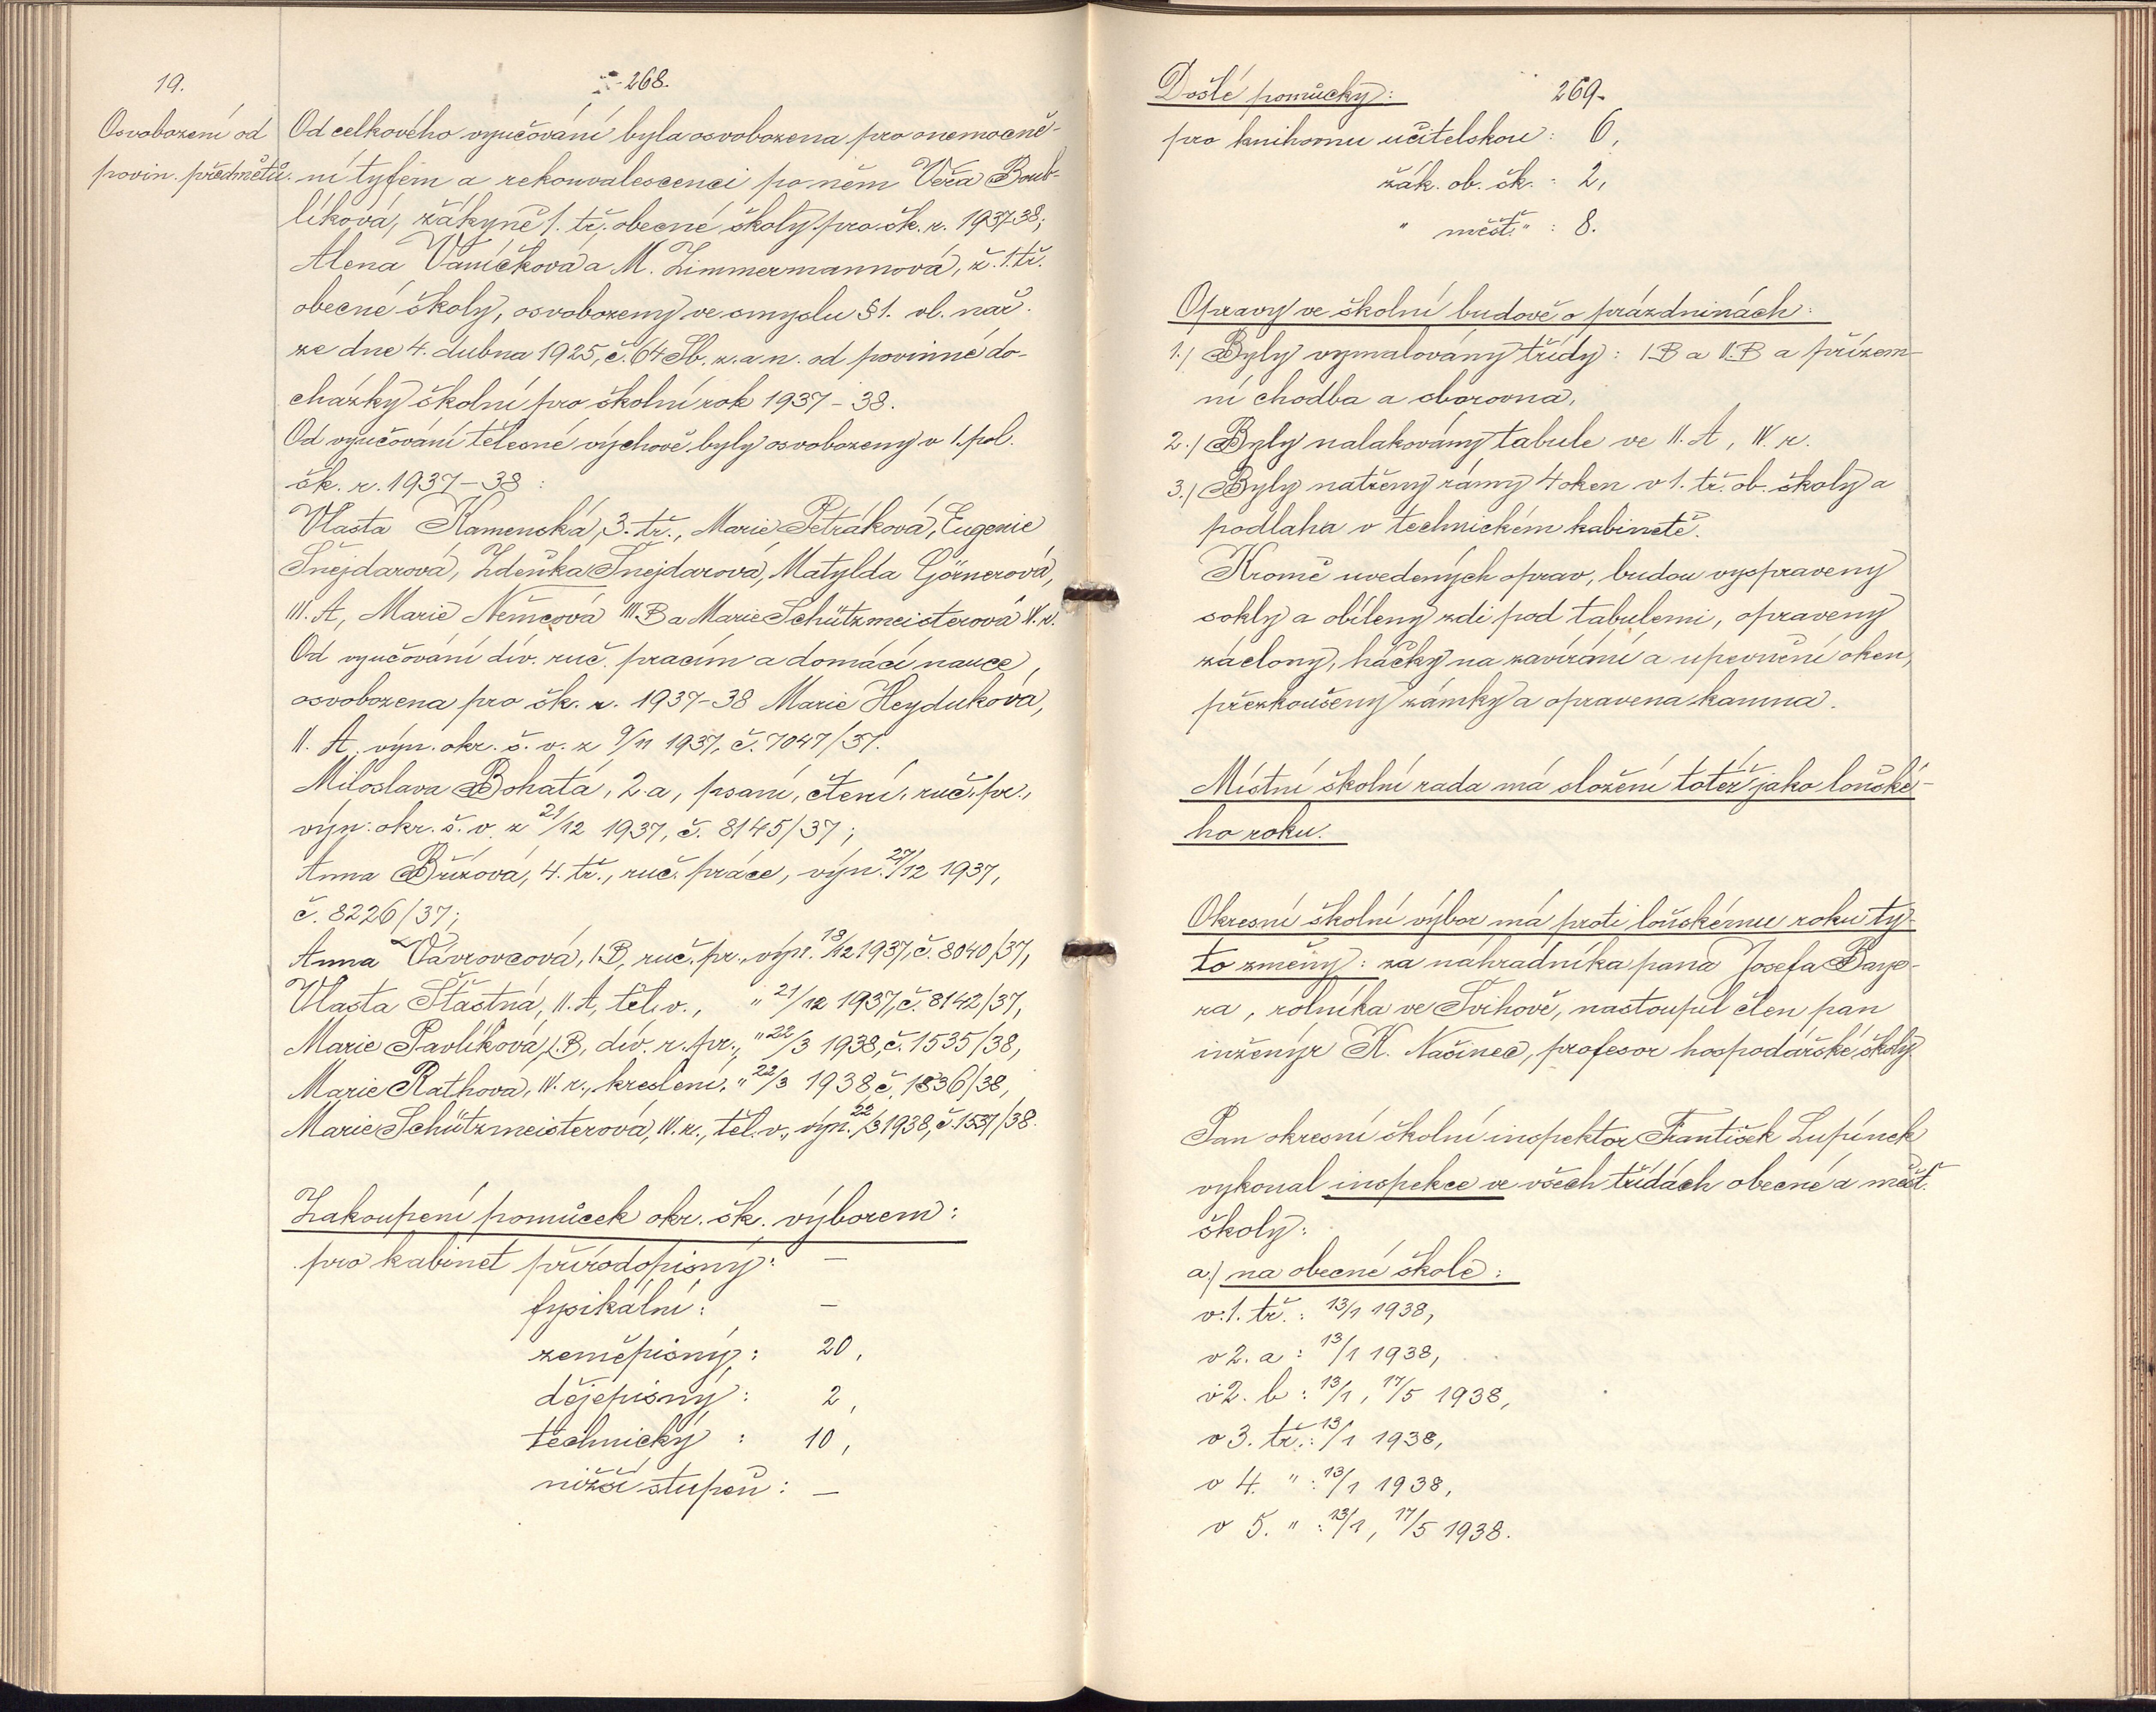 19.
-268.
Osvobození od
povin. předmětů.
Od celkového vyučování byla osvobozena pro onemocně-
ní tyfem a rekonvalescenci po něm Věra Boub-
líková, žákyně 1. tř. obecné školy pro šk. r. 1937-38;
Alena Vaníčková a M. Zimmermannová, ž. 1. tř.
obecné školy, osvobozeny ve smyslu § 1. vl. nař.
ze dne 4. dubna 1925, č. 64 Sb. z. a n. od povinné do-
cházky školní pro školní rok 1937-38.
Od vyučování tělesné výchově byly osvobozeny v 1. pol.
šk. r. 1937-38:
Vlasta Kamenská, 3. tř., Marie Petráková, Eugenie
Šnejdarová, Zdeňka Šnejdarová, Matylda Görnerová,
III. A, Marie Němcová III. B a Marie Schützmeisterová IV. r.
Od vyučování dív. ruč. pracím a domácí nauce
osvobozena pro šk. r. 1937-38 Marie Heyduková,
II. A. výn. okr. š. v. z 9/11 1937, č. 7047/37.
Miloslava Bohatá, 2. a, psaní, čtení, ruč. pr.,
výn. okr. š. v. z 21/12 1937, č. 8145/37;
Anna Břízová, 4. tř., ruč. práce, výn. 27/12 1937,
č. 8226/37;
Anna Vávrovcová, I. B, ruč. pr., výn. 18/12 1937, č. 8040/37,
Vlasta Šťastná, II. A, těl. v., " 21/12 1937, č. 8142/37,
Marie Pavlíková, I. B, dív. r. pr., " 22/3 1938, č. 1535/38,
Marie Rathová, IV. r., kreslení, " 22/3 1938 č. 1836/38,
Marie Schützmeisterová, IV. r., těl. v., výn. 22/3 1938, č. 1537/38.
Zakoupení pomůcek okr. šk. výborem:
pro kabinet přírodopisný: —
fysikální: —
zeměpisný: 20,
dějepisný: 2,
technický: 10,
nižší stupeň: —
269-
Došlé pomůcky:
pro knihovnu učitelskou: 6,
žák. ob. šk.: 2,
" měšť. ": 8.
Opravy ve školní budově o prázdninách:
1./ Byly vymalovány třídy: I. B a II. B a přízem-
ní chodba a sborovna,
2./ Byly nalakovány tabule ve II. A, IV. r.
3./ Byly natřeny rámy 4 oken v 1. tř. ob. školy a
podlaha v technickém kabinetě.
Kromě uvedených oprav, budou vyspraveny
sokly a obíleny zdi pod tabulemi, opraveny
záclony, háčky na zavírání a upevnění oken,
přezkoušeny zámky a opravena kamna.
Místní školní rada má složení totéž jako loňské-
ho roku.
Okresní školní výbor má proti loňskému roku ty-
to změny: za náhradníka pana Josefa Baye-
ra, rolníka ve Švihově, nastoupil člen pan
inženýr K. Našinec, profesor hospodářské školy.
Pan okresní školní inspektor František Lupínek
vykonal inspekce ve všech třídách obecné a měšť.
školy:
a./ na obecné škole:
v 1. tř.: 13/1 1938,
v 2. a: 13/1 1938,
v 2. b: 13/1, 17/5 1938,
v 3. tř.: 13/1 1938,
v 4. ": 13/1 1938,
v 5. ": 13/1, 17/5 1938.